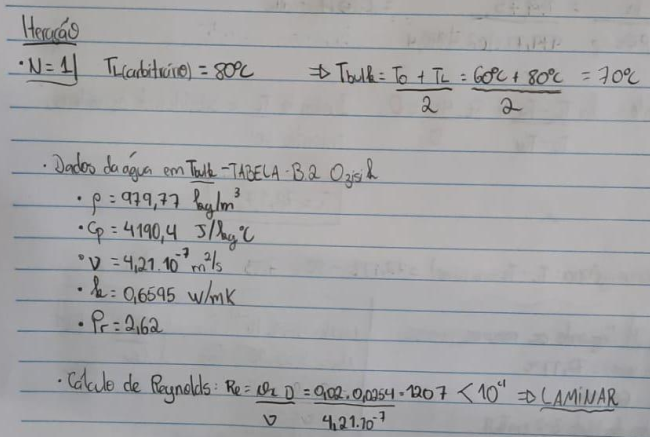 Iteração
• N=1| TL(arbitrário) = 80°C ⇒ Tbulk = T0 + TL / 2 = 60°C + 80°C / 2 = 70°C
• Dados da água em Tbulk - TABELA B.2 Ozisik
• ρ = 979,77 kg/m³
• Cp = 4190,4 J/kg°C
• ν = 4,21.10⁻⁷ m²/s
• k = 0,6595 W/mK
• Pr = 2,62
• Cálculo de Reynolds: Re = D / ν = 0,02.0,0254 / 4,21.10⁻⁷ = 1207 < 10⁴ ⇒ LAMINAR